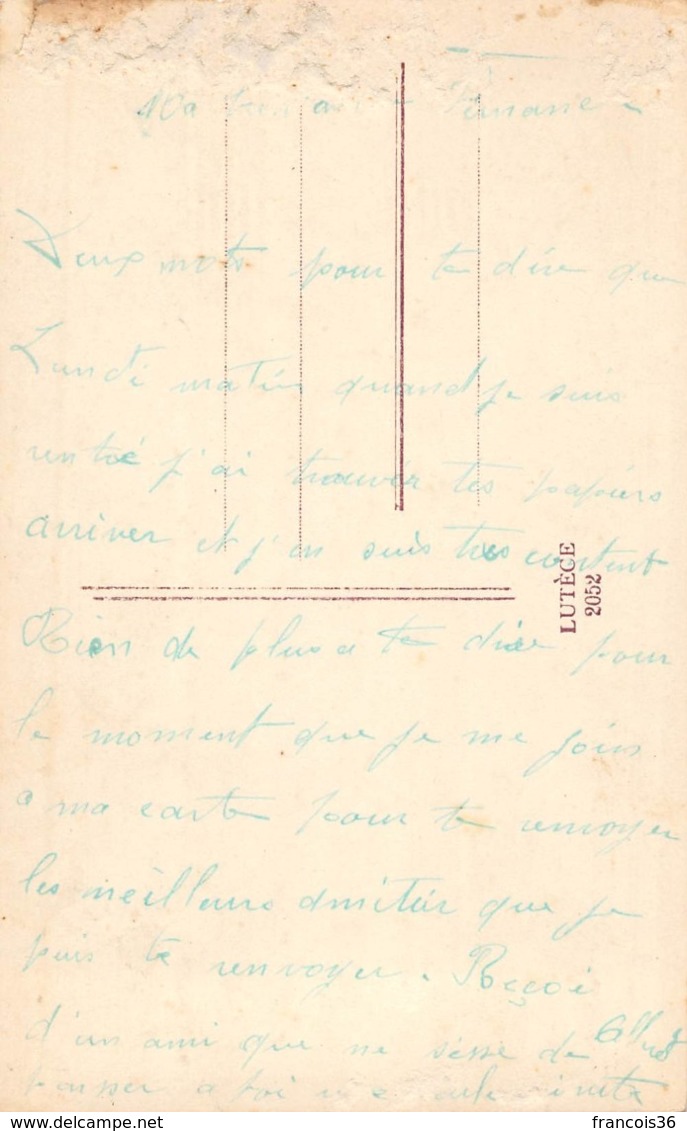 Ma
Deux mots pour te dire que
Lundi matin quand je suis
rentré j'ai trouvér tes papiers
arriver et j'en suis tres content
Rien de plus a te dire pour
le moment que je me joins
a ma carte pour te renvoyer
les meilleurs amitiés que je
puis te renvoyer. Reçoi
d'un ami que ne sesse de
pansser a toi
LUTÈCE
2052
francois36